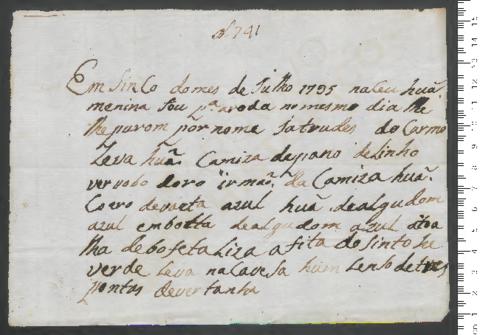 N 741
Em sinCo do mes de Julho 1795 naceu huã
menina fou pª a roda no mesmo dia lhe
lhe puzom por nome Jatrudes do Carmo
Leva huã Camiza de pano de Linho
da Camiza huã
Coero de azul huã de algudom
azul de algudom azul
lha de bofeta Liza a fita do sinto he
verde Leva na Cavesa hum Lenso de tres
pontas de